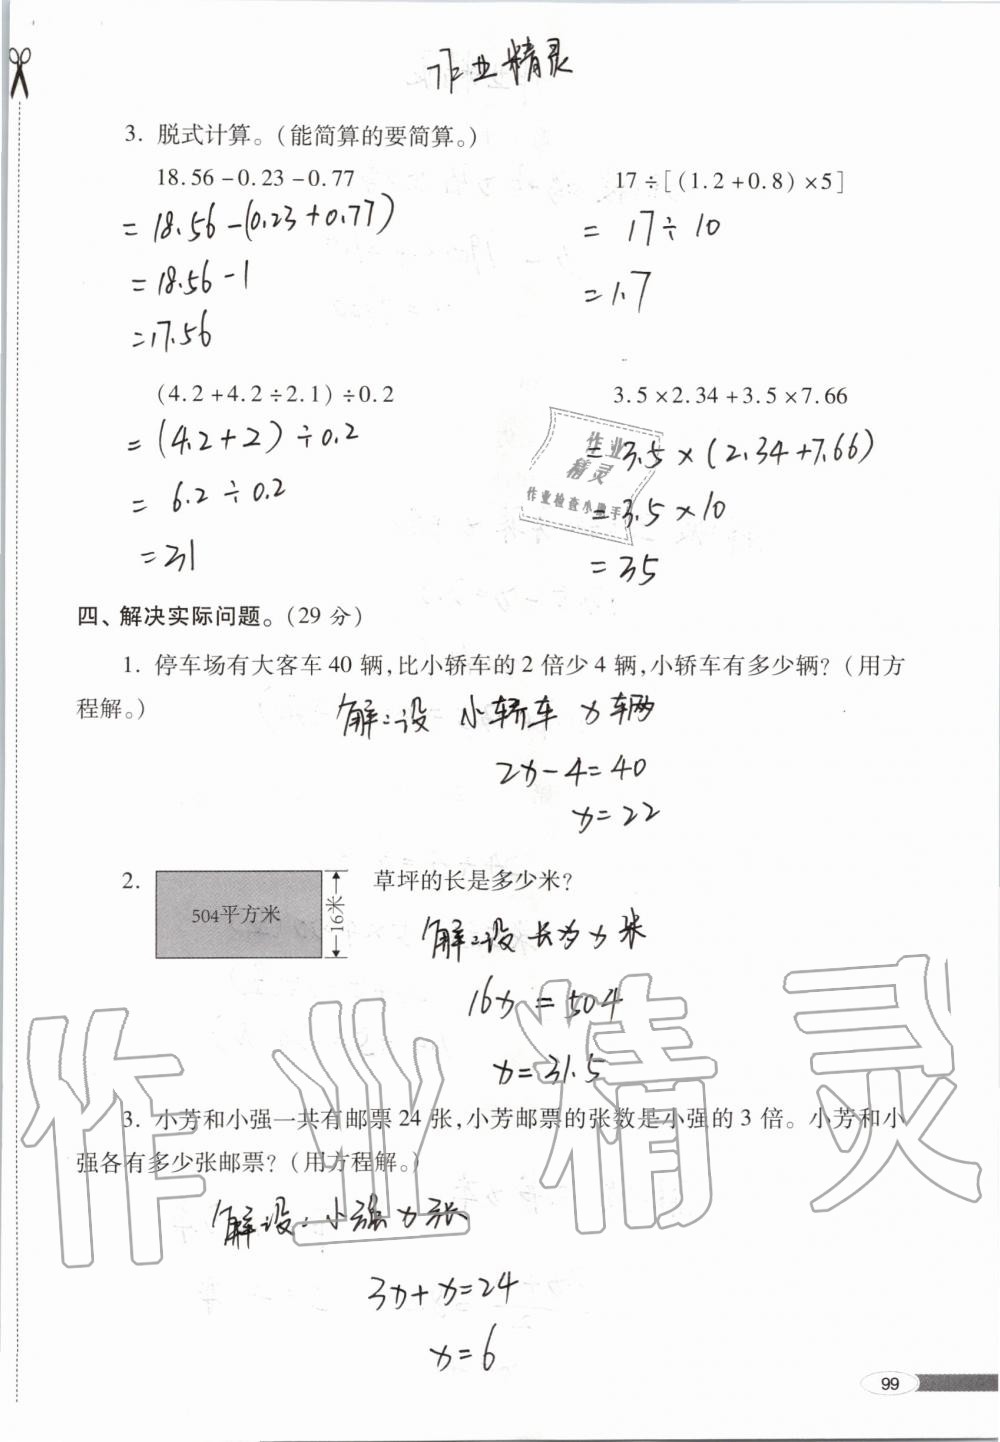 作业精灵
3. 脱式计算。(能简算的要简算。)
18.56-0.23-0.77
17÷[(1.2+0.8)×5]
= 18.56-(0.23+0.77)
= 17÷10
= 18.56-1
= 1.7
=17.56
(4.2+4.2÷2.1)÷0.2
3.5×2.34+3.5×7.66
= (4.2+2)÷0.2
= 3.5×(2.34+7.66)
= 6.2÷0.2
= 3.5×10
= 31
= 35
作业
精灵
作业检查小助手
四、解决实际问题。(29 分)
1. 停车场有大客车 40 辆,比小轿车的 2 倍少 4 辆,小轿车有多少辆?(用方
程解。)
解:设 小轿车 x辆
2x-4=40
x=22
2.
504平方米
16米
草坪的长是多少米?
解:设 长为x米
16x=504
x=31.5
3. 小芳和小强一共有邮票 24 张,小芳邮票的张数是小强的 3 倍。小芳和小
强各有多少张邮票?(用方程解。)
解设:小强x张
3x+x=24
x=6
作业精灵
99